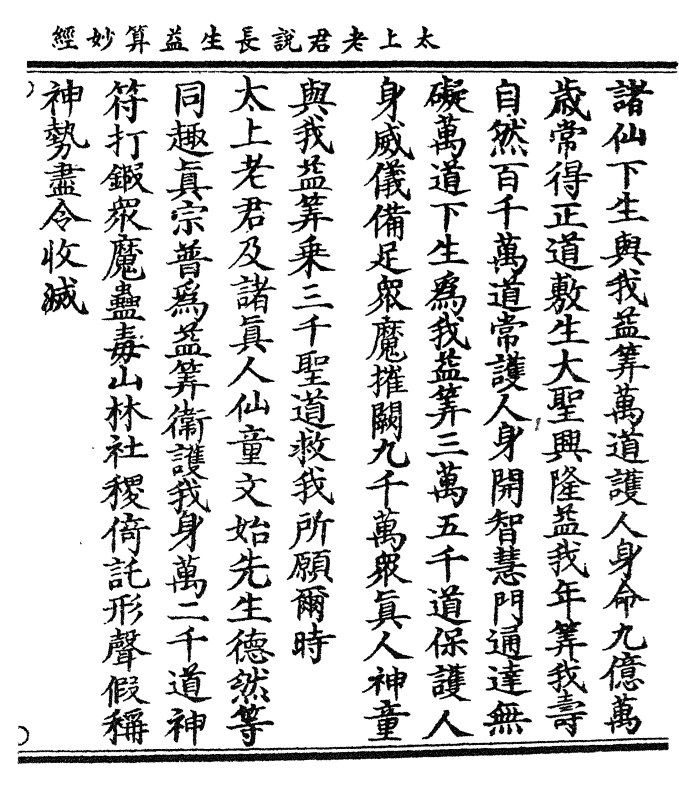 太上老君說長生益算妙經
諸仙下生與我益筭萬道護人身命九億萬
歲常得正道敷生大聖興隆益我年筭我壽
自然百千萬道常護人身開智慧門通達無
礙萬道下生爲我益筭三萬五千道保護人
身威儀備足衆魔摧闕九千萬衆眞人神童
與我益筭乘三千聖道救我所願爾時
太上老君及諸眞人仙童文始先生德然等
同趣眞宗普爲益筭衛護我身萬二千道神
符打鍜衆魔蠱毒山林社稷倚託形聲假稱
神勢盡令收滅